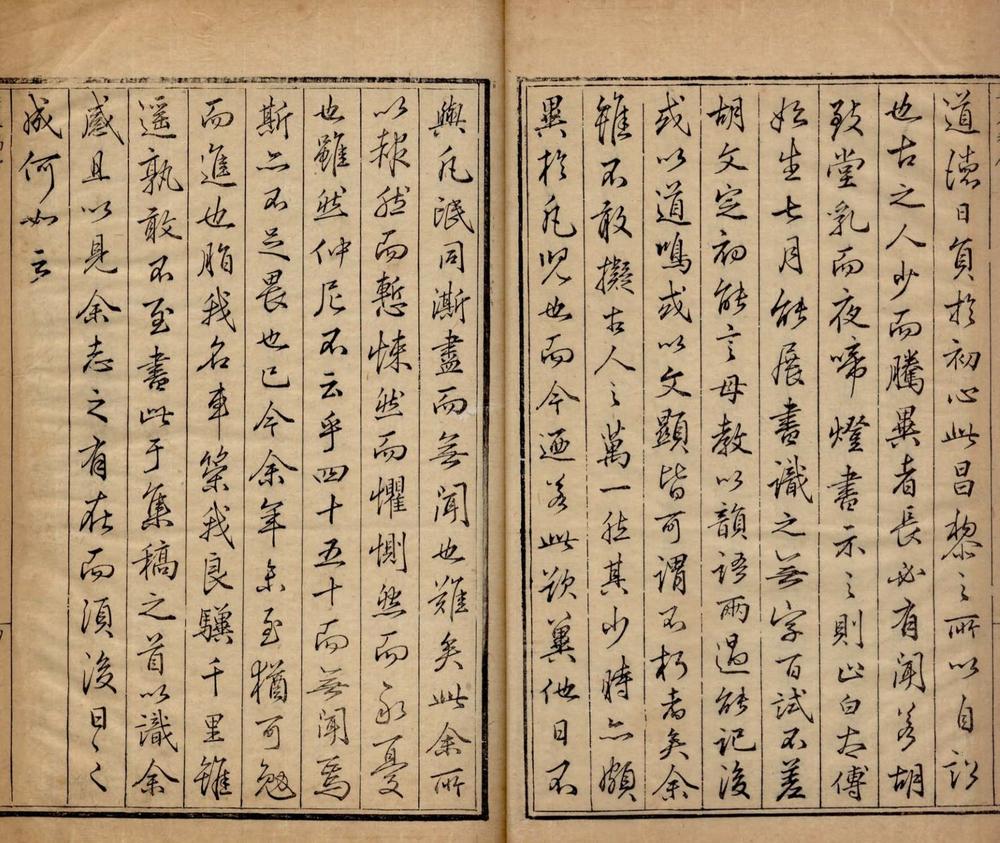 道德日負於初心此昌黎之所以自訟
也古之人少而騰異者長必有聞若胡
致堂乳而夜啼燈書示之則止白太傅
始生七月能展書識之無字百試不差
胡文定初能言母教以韻語兩過能記後
或以道鳴或以文顯皆可謂不朽者矣余
雖不敢擬古人之萬一然其少時亦頗
異於凡兒也而今迺若此歟冀他日不
與凡泯同澌盡而無聞也難矣此余所
以赧然而慙悚然而懼惻然而永憂
也雖然仲尼不云乎四十五十而無聞焉
斯亦不足畏也已今余年未至猶可勉
而進也脂我名車策我良驥千里雖
遥孰敢不至書此于集稿之首以識余
感且以見余志之有在而須後日之
成何如云